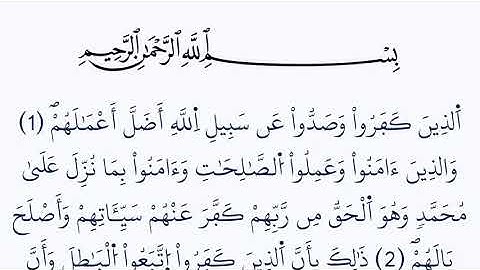 بِسْمِ اِللَّهِ اِلرَّحْمَٰنِ اِلرَّحِيمِ
اَلذِينَ كَفَرُواْ وَصَدُّواْ عَن سَبِيلِ اِللَّهِ أَضَلَّ أَعْمَٰلَهُمْۖ (1)
وَالذِينَ ءَامَنُواْ وَعَمِلُواْ اُلصَّٰلِحَٰتِ وَءَامَنُواْ بِمَا نُزِّلَ عَلَىٰ
مُحَمَّدٖ وَهُوَ اَلْحَقُّ مِن رَّبِّهِمْ كَفَّرَ عَنْهُمْ سَيِّـَٔاتِهِمْ وَأَصْلَحَ
بَالَهُمْۖ (2) ذَٰلِكَ بِأَنَّ اَلذِينَ كَفَرُواْ اُتَّبَعُواْ اُلْبَٰطِلَ وَأَنَّ